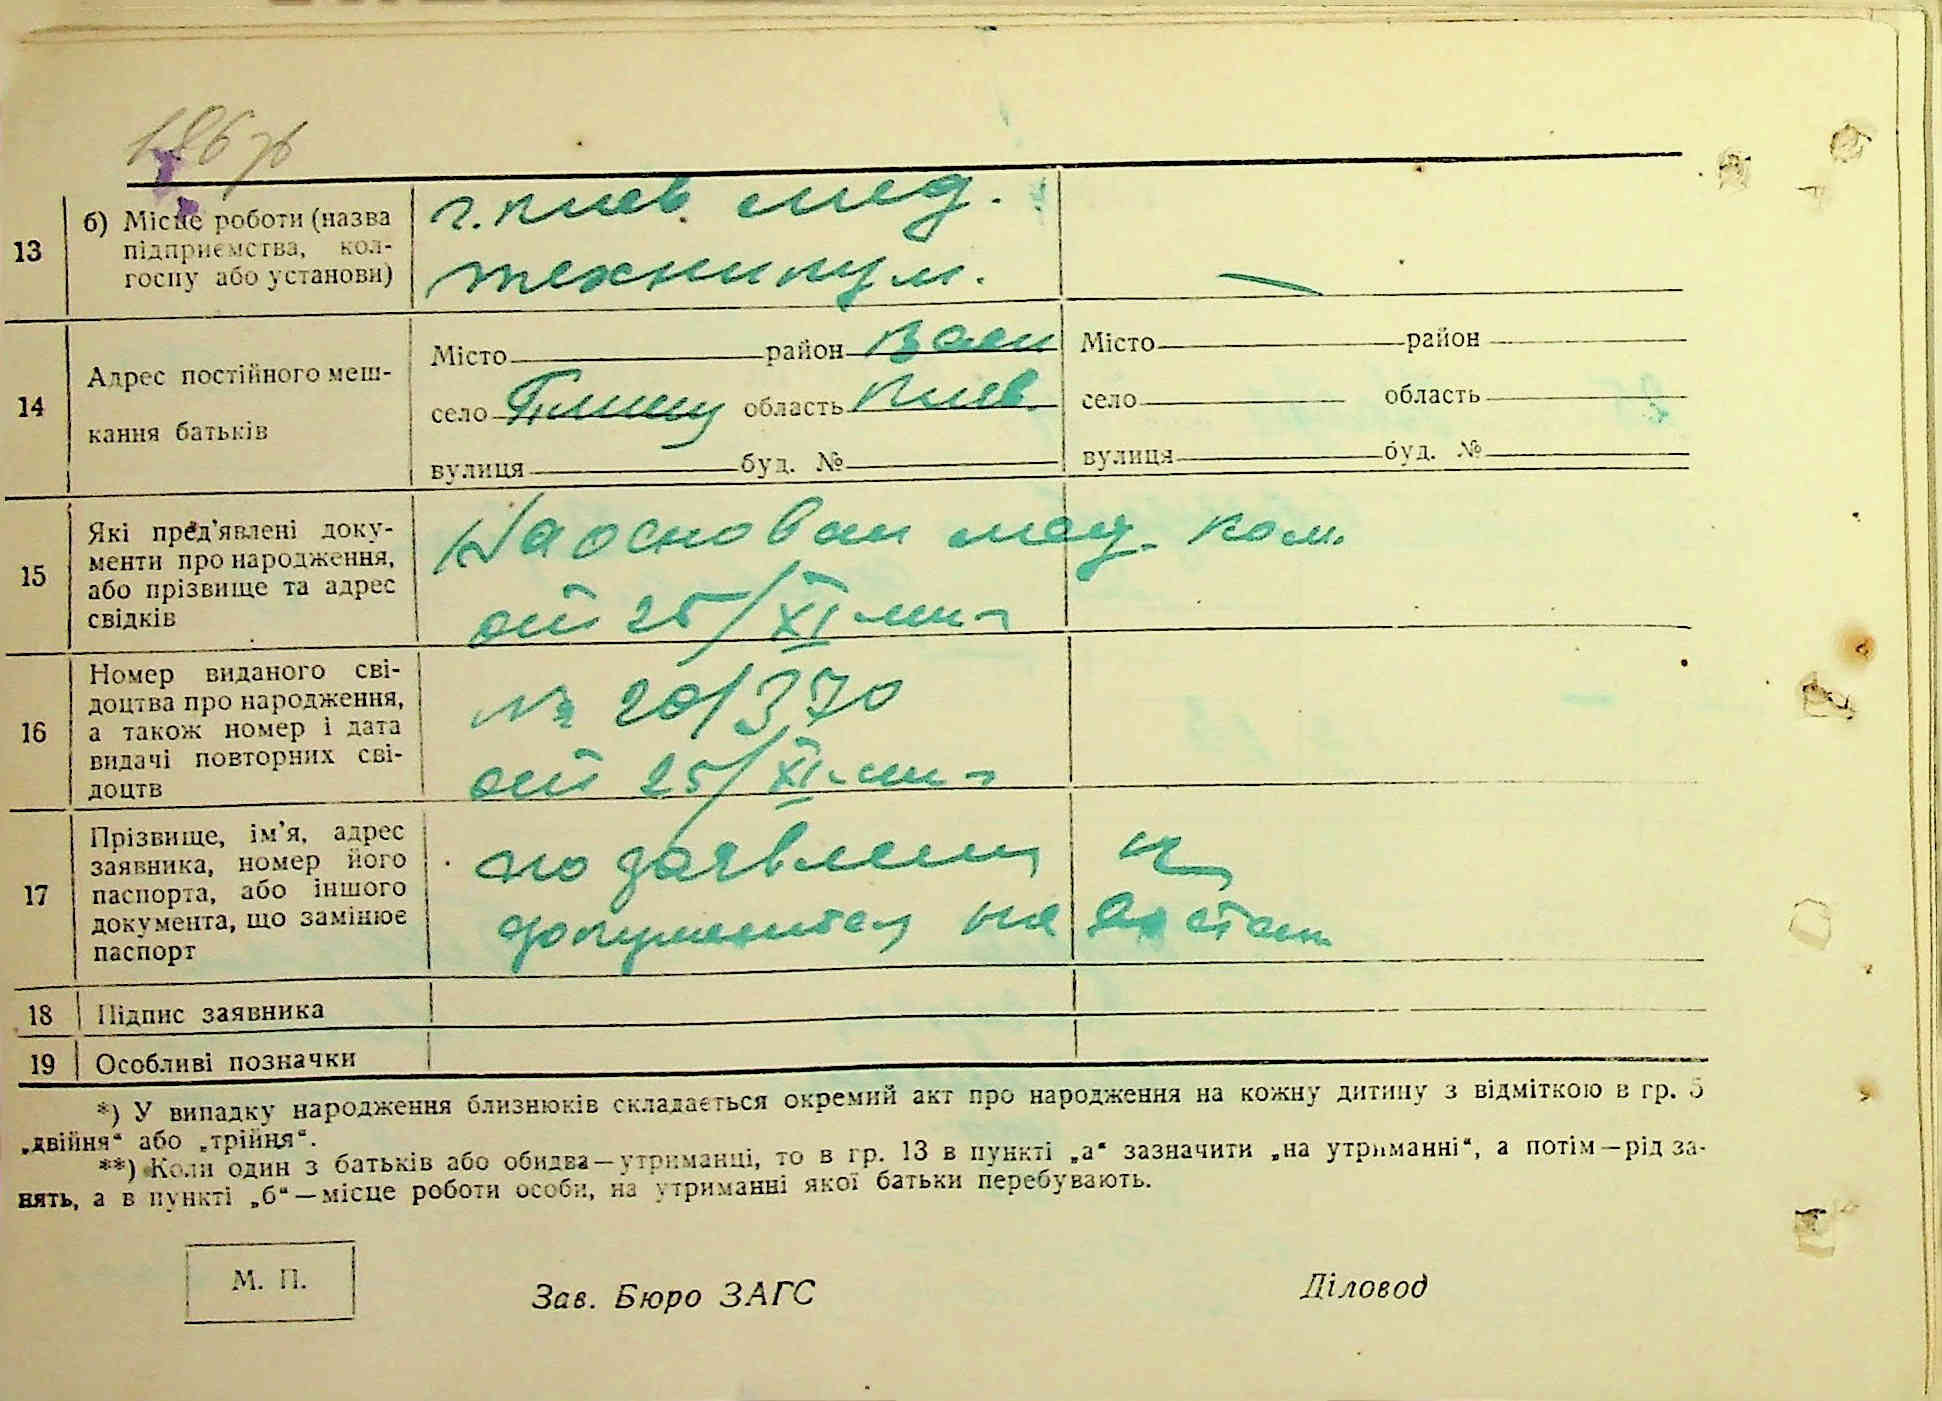 186 зв
13 б) Місце роботи (назва підприємства, колгоспу або установи) г. Киев. мед. техникум.
14 Адрес постійного мешкання батьків
Місто район Васи Місто район
село Плищу область Киев. село область
вулиця буд. № вулиця буд. №
15 Які пред'явлені документи про народження, або прізвище та адрес свідків
На основан мед. ком.
от 25/XI
16 Номер виданого свідоцтва про народження, а також номер і дата видачі повторних свідоцтв
№ 20/370
от 25/XI
17 Прізвище, ім'я, адрес заявника, номер його паспорта, або іншого документа, що замінює паспорт
по заявлен и
документа не
18 Підпис заявника
19 Особливі позначки
*) У випадку народження близнюків складається окремий акт про народження на кожну дитину з відміткою в гр. 5
„двійня“ або „трійня“.
**) Коли один з батьків або обидва—утриманці, то в гр. 13 в пункті „а“ зазначити „на утриманні“, а потім—рід за-
нять, а в пункті „б“—місце роботи особи, на утриманні якої батьки перебувають.
М. П.
Зав. Бюро ЗАГС Діловод